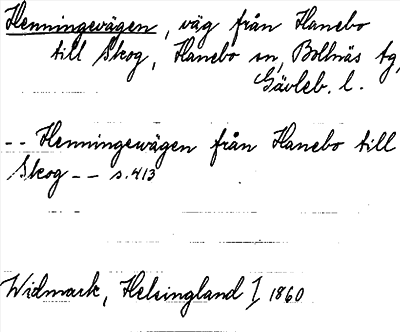 Henningevägen, väg från Hanebo
till Skog, Hanebo sn, Bollnäs tg,
Gävleb. l.
-- Henningevägen från Hanebo till
Skog -- s. 413
Widmark, Helsingland I 1860